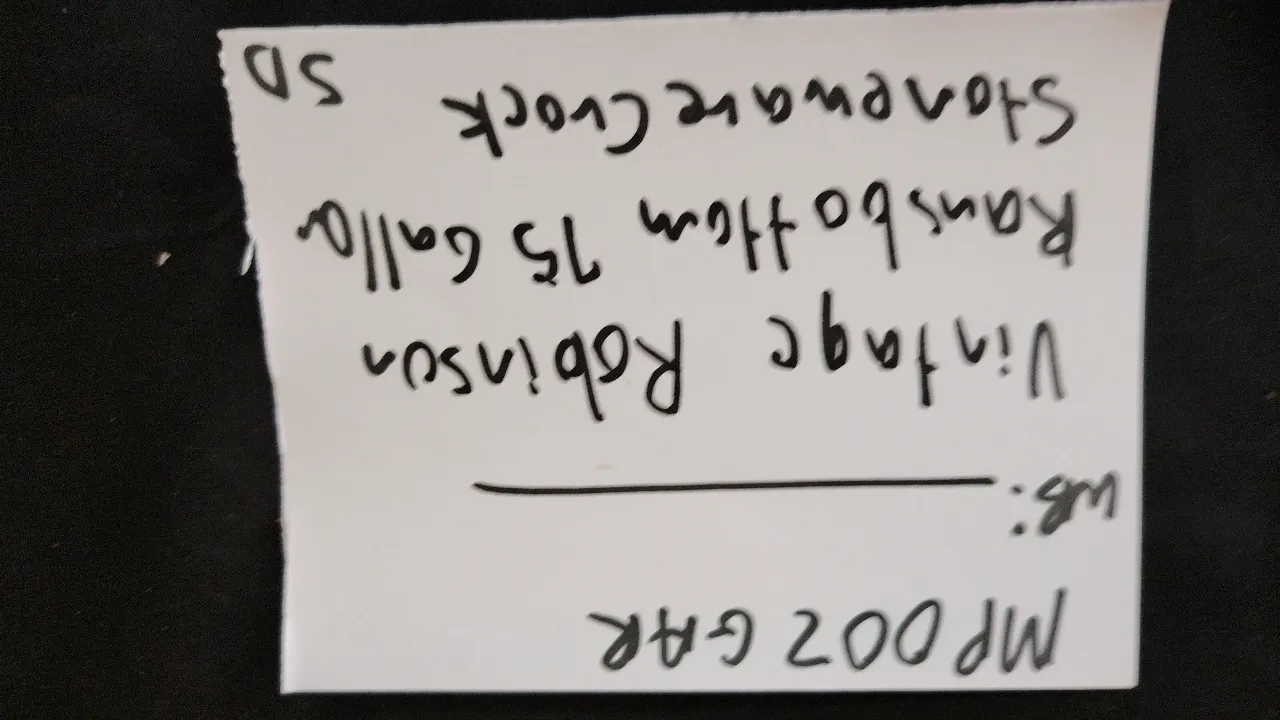 MP002GAR
WB:
Vintage Robinson
Ransbottom 15 Gallo
Stoneware Crock SD